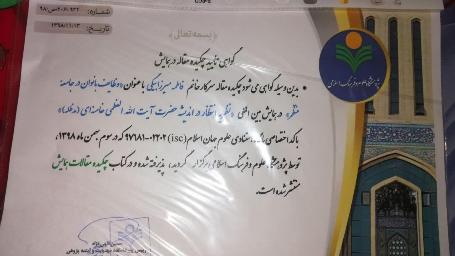 شماره: ۹۸/ص/۲۰۶۰۹۳۲
تاریخ: ۱۳۹۸/۱۱/۱۳
﴿بسمه‌تعالی﴾
گواهی تایید چکیده مقاله در همایش
پژوهشگاه علوم و فرهنگ اسلامی
بدین وسیله گواهی می شود چکیده مقاله سرکار خانم فاطمه میرزابیگی با عنوان «وظایف بانوان در جامعه
منتظر» در همایش بین المللی «نظریه انتظار در اندیشه حضرت آیت الله العظمی خامنه ای (مدظله)»
با کد اختصاصی استنادی علوم جهان اسلام (isc) ۹۷۶۸۱-۰۲۲۰۲ که در سوم بهمن ماه ۱۳۹۸
توسط پژوهشگاه علوم و فرهنگ اسلامی برگزار گردید، پذیرفته شده و در کتاب چکیده مقالات همایش
منتشر شده است.